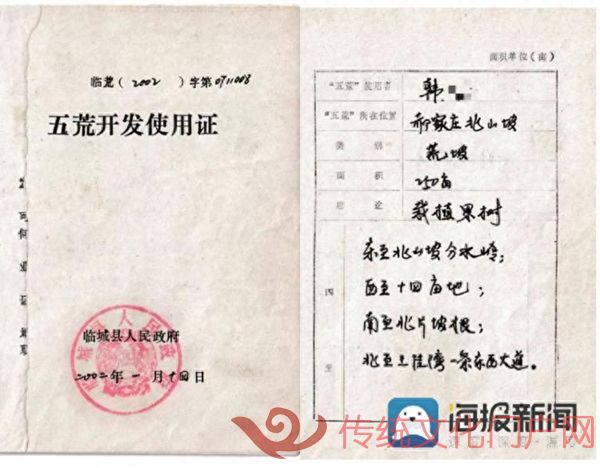 临荒（2002 ）字第0711008
五荒开发使用证
临城县人民政府
二〇〇二年一月十四日
面积单位（亩）
“五荒”使用者 韩
“五荒”所在位置 郝家庄北山坡
类别 荒坡
面积 250亩
用途 栽植果树
四至
东至北山坡分水岭；
西至十四亩地；
南至北片坡根；
北至土佳湾一条东西大道。
海报新闻
传统文化门户网